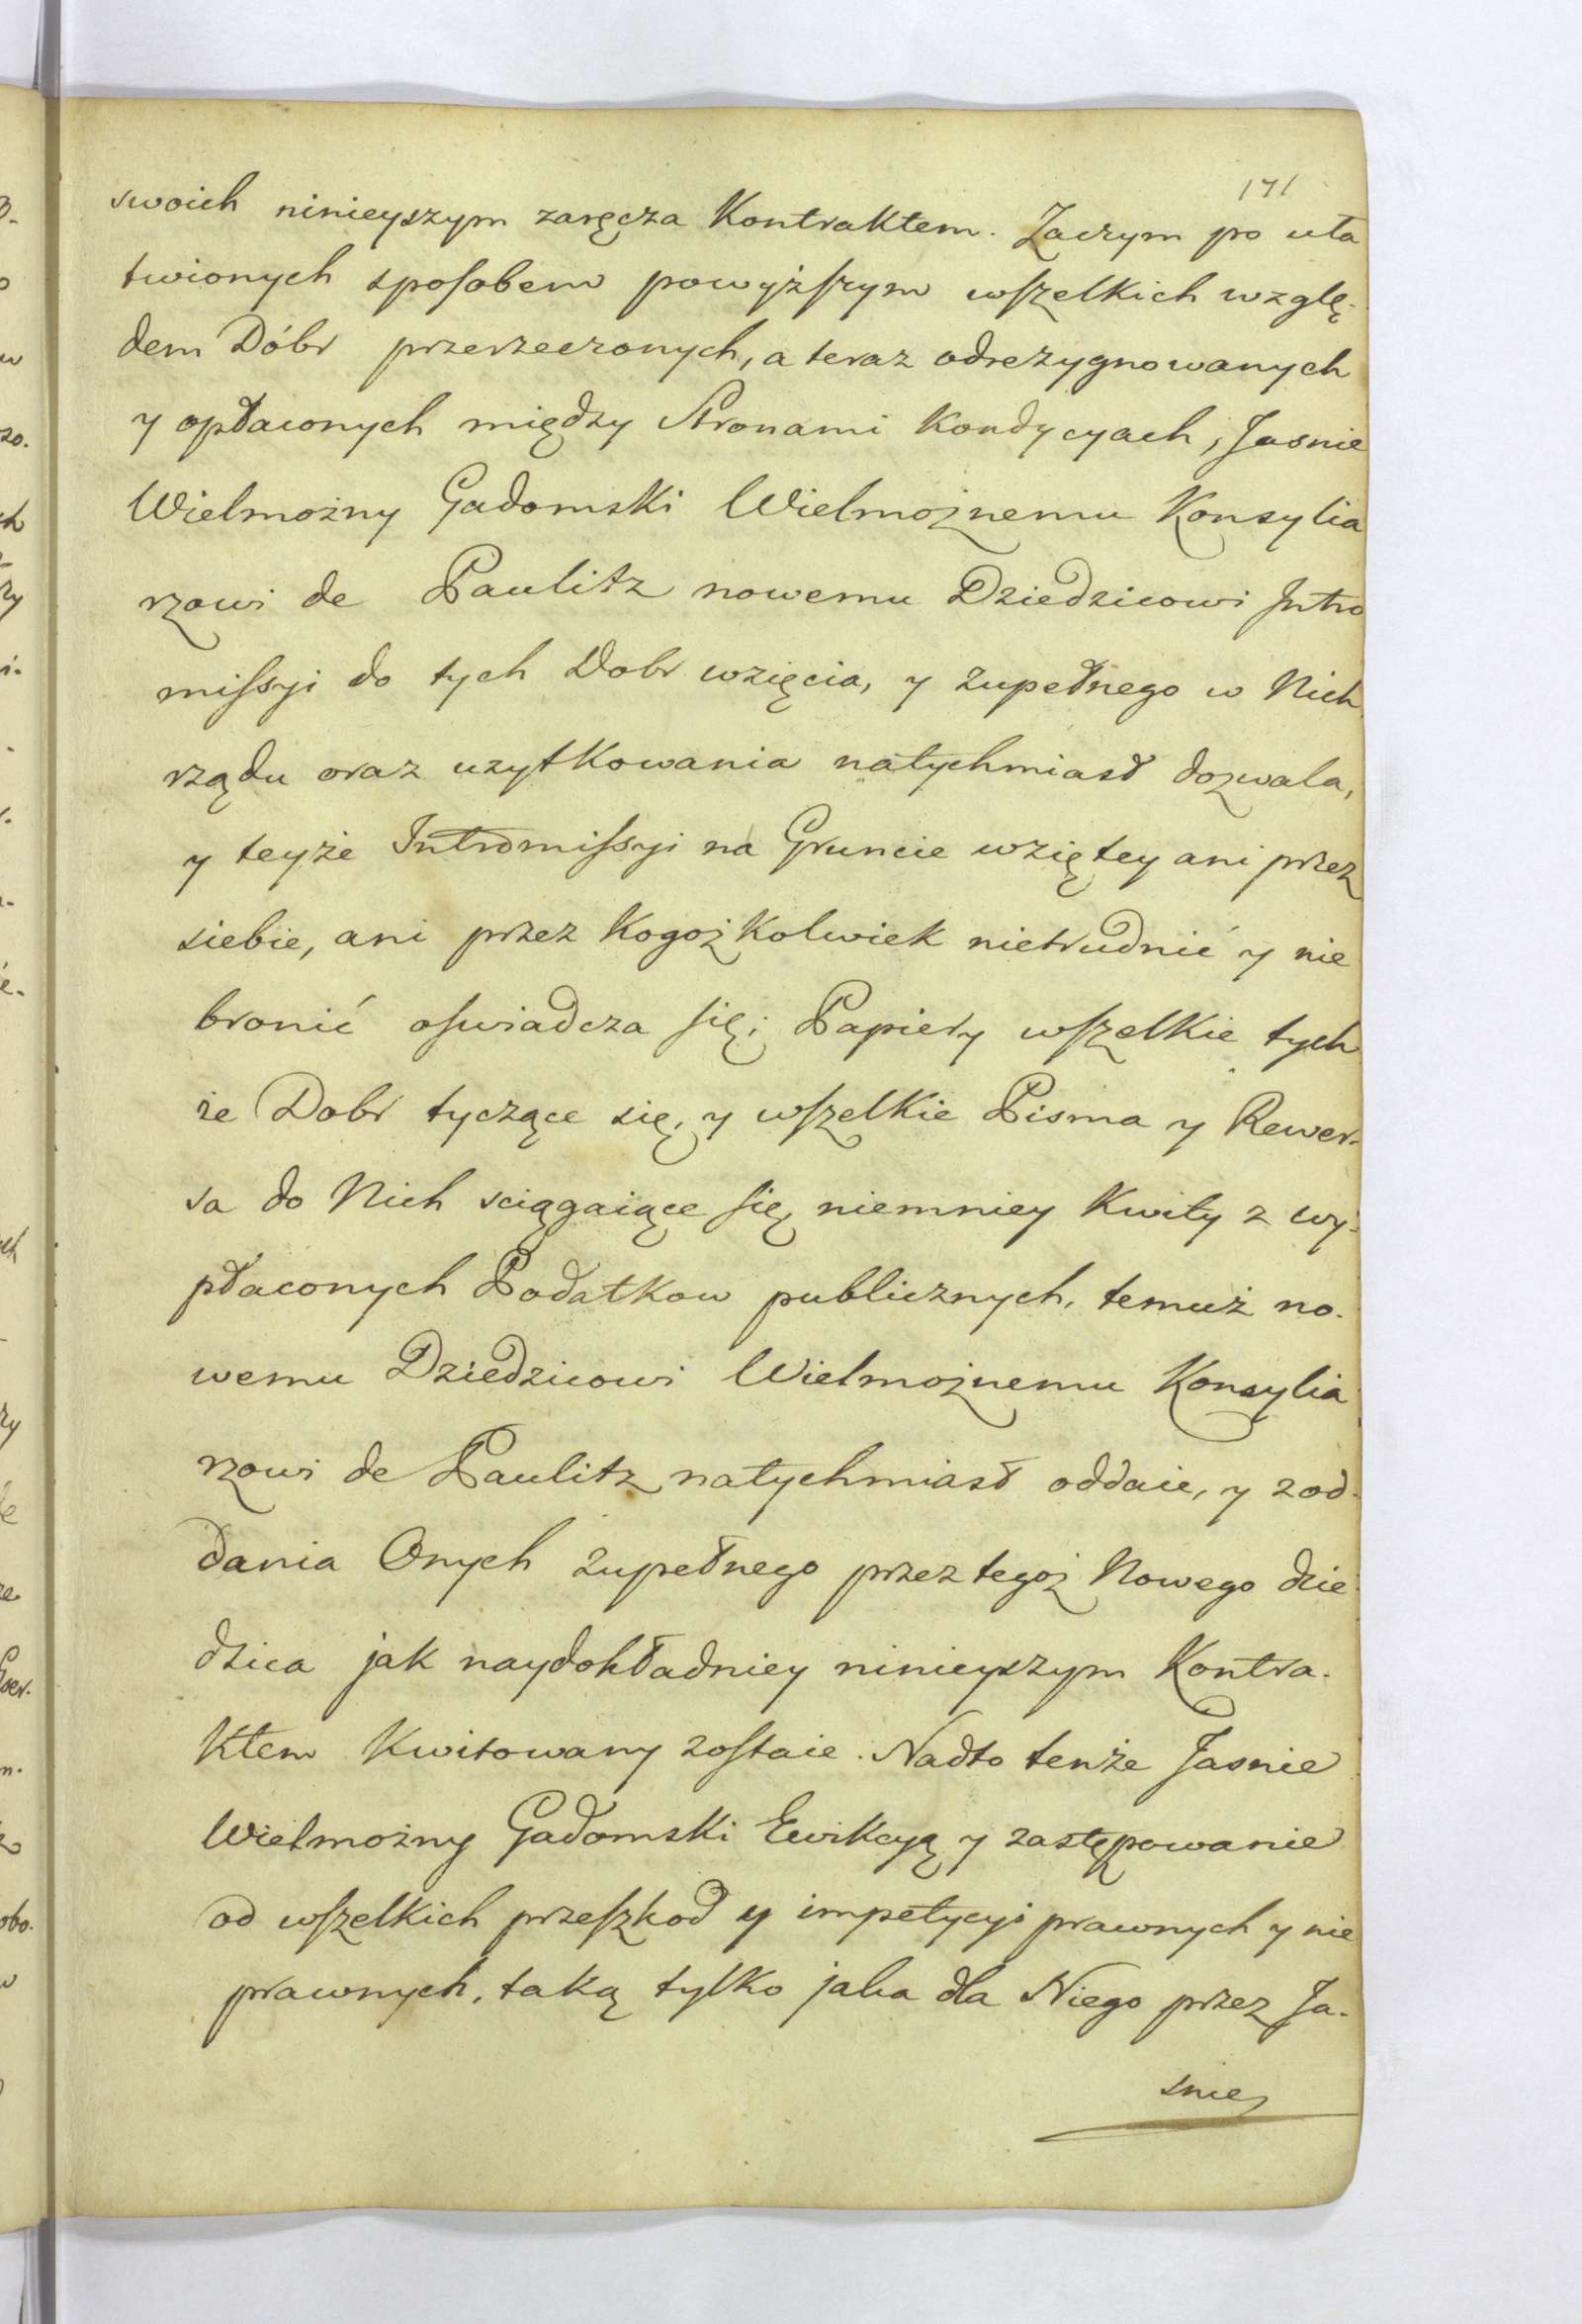 171
swoich ninieyszym zaręcza Kontraktem. Zaczym po uła
twionych sposobem powyższym wszelkich wzglę-
dem Dóbr przerzeczonych, a teraz odrezygnowanych
y opłaconych między Stronami Kondycyach, Jasnie
Wielmożny Gadomski Wielmożnemu Konsylia
rzowi de Paulitz nowemu Dziedzicowi Intro
missyi do tych Dobr wzięcia, y zupełnego w Nich
rządu oraz uzytkowania natychmiast dozwala,
y teyże Intromissyi na Gruncie wziętey ani przez
siebie, ani przez Kogoż Kolwiek nietrudnić y nie
bronić oswiadcza się; Papiery wszelkie tych
że Dobr tyczące się, y wszelkie Pisma y Rewer-
sa do Nich sciągaiące się niemniey Kwity z wy-
płaconych Podatkow publicznych, temuż no-
wemu Dziedzicowi Wielmożnemu Konsylia
rzowi de Paulitz natychmiast oddaie, y z od-
dania Onych zupełnego przez tegoż Nowego dzie
dzica jak naydokładniey ninieyszym Kontra-
Ktem Kwitowany zostaie. Nadto tenże Jasnie
Wielmożny Gadomski Ewikcyą y zastępowanie
od wszelkich przeszkod y impetycyi prawnych y nie
prawnych, taką tylko jaka dla Niego przez Ja-
snie